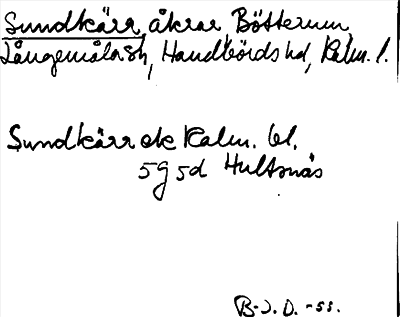 Sundkärr, åkrar Bötterum,
Långemåla sn, Handbörds hd, Kalm. l.
Sundkärr ek Kalm. bl.
5g 5d Hultsnäs
B-J. D. -55.